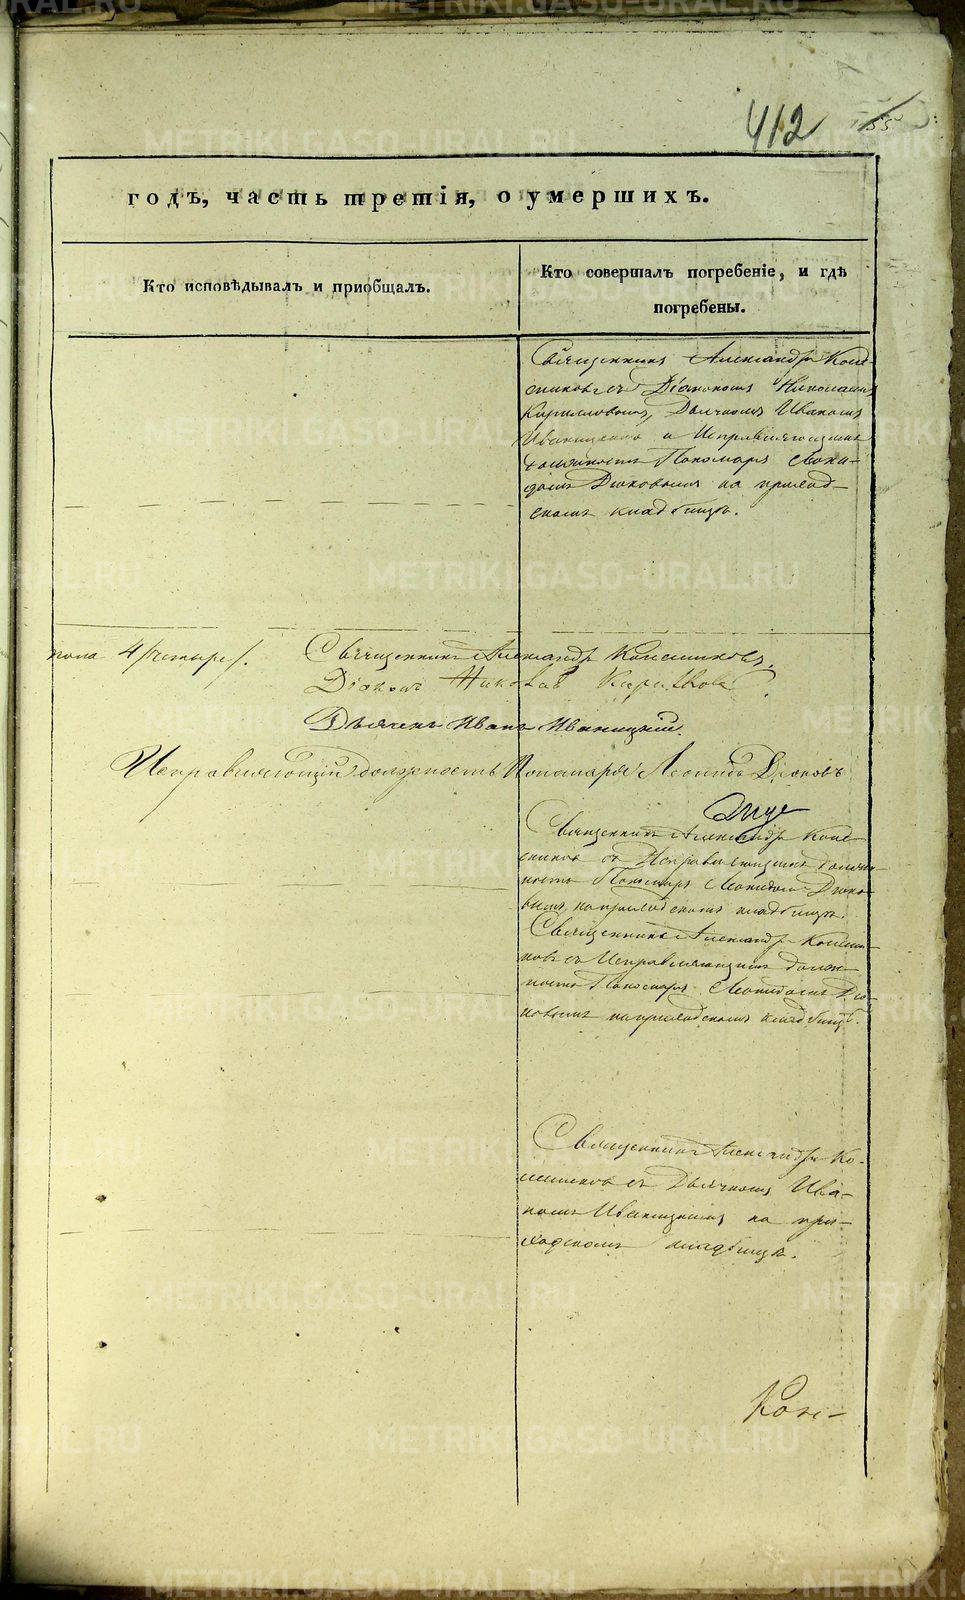 412
55
годъ, часть третія, о умершихъ.
Кто исповѣдывалъ и приобщалъ.
Кто совершалъ погребеніе, и гдѣ
погребены.
Священникъ Александръ
съ Діакономъ Николаемъ
Кирилловымъ, Дьячкомъ Иваномъ
Иваницкимъ и Исправляющимъ
должность Пономаря Леони-
домъ Дюковымъ на приход-
скомъ кладбищѣ.
пола 4 /четыре/. Священникъ Александръ
Діаконъ Николай Кирилловъ
Дьячекъ Иванъ Иваницкій.
Исправляющій должность Пономаря Леонидъ Дюковъ
Священникъ Александръ
съ Исправляющимъ долж-
ность Пономаря Леонидомъ Дюко-
вымъ, на приходскомъ кладбищѣ.
Священникъ Александръ
съ Исправляющимъ долж-
ность Пономаря Леонидомъ Дю-
ковымъ на приходскомъ кладбищѣ.
Священникъ Александръ
съ Дьячкомъ Ива-
номъ Иваницкимъ на при-
ходскомъ кладбищѣ.
METRIKI.GASO-URAL.RU